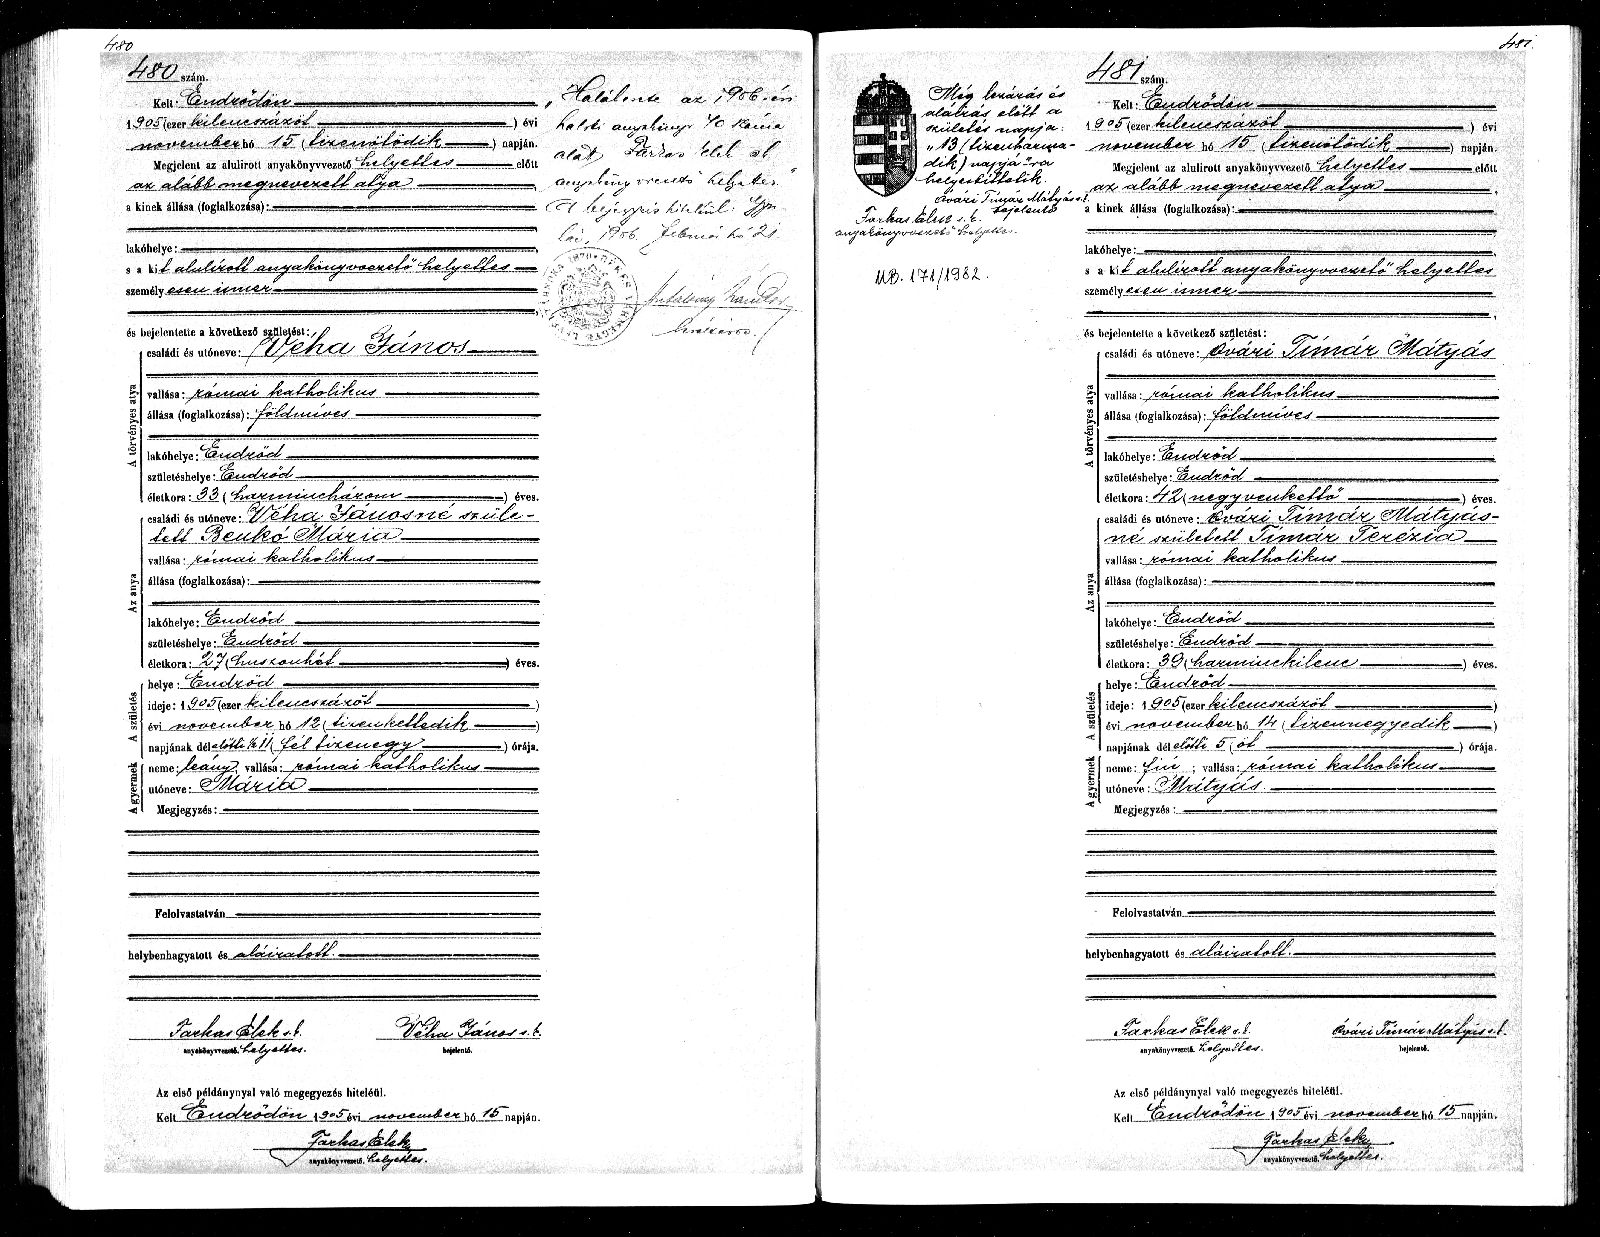 480
480 szám.
Kelt: Endrődön
1905 (ezer kilencszázöt ) évi
november hó 15 (tizenötödik ) napján.
Megjelent az alulirott anyakönyvvezető helyettes előtt
az alább megnevezett atya
a kinek állása (foglalkozása):
lakóhelye:
s a kit alulírott anyakönyvvezető helyettes
személyesen ismer
és bejelentette a következő születést:
A törvényes atya
családi és utóneve: Véha János
vallása: római katholikus
állása (foglalkozása): földmíves
lakóhelye: Endrőd
születéshelye: Endrőd
életkora: 33 (harminchárom ) éves.
Az anya
családi és utóneve: Véha Jánosné szüle-
tett Benkó Mária
vallása: római katholikus
állása (foglalkozása):
lakóhelye: Endrőd
születéshelye: Endrőd
életkora: 27 (huszonhét ) éves.
A születés
helye: Endrőd
ideje: 1905 (ezer kilencszázöt )
évi november hó 12 (tizenkettedik )
napjának délelőtti ½ 11 (fél tizenegy ) órája.
A gyermek
neme: leány; vallása: római katholikus
utóneve: Mária
Megjegyzés:
Felolvastatván
helybenhagyatott és aláiratott.
Farkas Elek s.k. Véha János s.k.
anyakönyvvezető. helyettes. bejelentő.
Az első példánynyal való megegyezés hiteléül.
Kelt Endrődön 1905 évi november hó 15 napján.
Farkas Elek
anyakönyvvezető. helyettes.
"Halálesete az 1906. évi
halotti anyakönyv 40 száma
alatt. Farkas Elek sk.
anyakönyvvezető helyettes."
A bejegyzés hiteléül: Gyu-
la, 1906. Február hó 21.
481.
481 szám.
Még lezárás és
aláírás előtt a
születés napja
"13 (tizenharma-
dik) napjá"-ra
helyesbíttetik.
Óvári Tímár Mátyás s.k.
bejelentő
Farkas Elek s.k.
anyakönyvvezető helyettes.
UB. 171/1982.
Kelt: Endrődön
1905 (ezer kilencszázöt ) évi
november hó 15 (tizenötödik ) napján.
Megjelent az alulirott anyakönyvvezető helyettes előtt
az alább megnevezett atya
a kinek állása (foglalkozása):
lakóhelye:
s a kit alulírott anyakönyvvezető helyettes
személyesen ismer
és bejelentette a következő születést:
A törvényes atya
családi és utóneve: Óvári Tímár Mátyás
vallása: római katholikus
állása (foglalkozása): földmíves
lakóhelye: Endrőd
születéshelye: Endrőd
életkora: 42 (negyvenkettő ) éves.
Az anya
családi és utóneve: Óvári Tímár Mátyás-
né született Tímár Terézia
vallása: római katholikus
állása (foglalkozása):
lakóhelye: Endrőd
születéshelye: Endrőd
életkora: 39 (harminckilenc ) éves.
A születés
helye: Endrőd
ideje: 1905 (ezer kilencszázöt )
évi november hó 14 (tizennegyedik )
napjának délelőtti 5 (öt ) órája.
A gyermek
neme: fiú; vallása: római katholikus
utóneve: Mátyás.
Megjegyzés:
Felolvastatván
helybenhagyatott és aláiratott.
Farkas Elek s.k. Óvári Tímár Mátyás s.k.
anyakönyvvezető. helyettes. bejelentő.
Az első példánynyal való megegyezés hiteléül.
Kelt Endrődön 1905 évi november hó 15 napján.
Farkas Elek
anyakönyvvezető. helyettes.